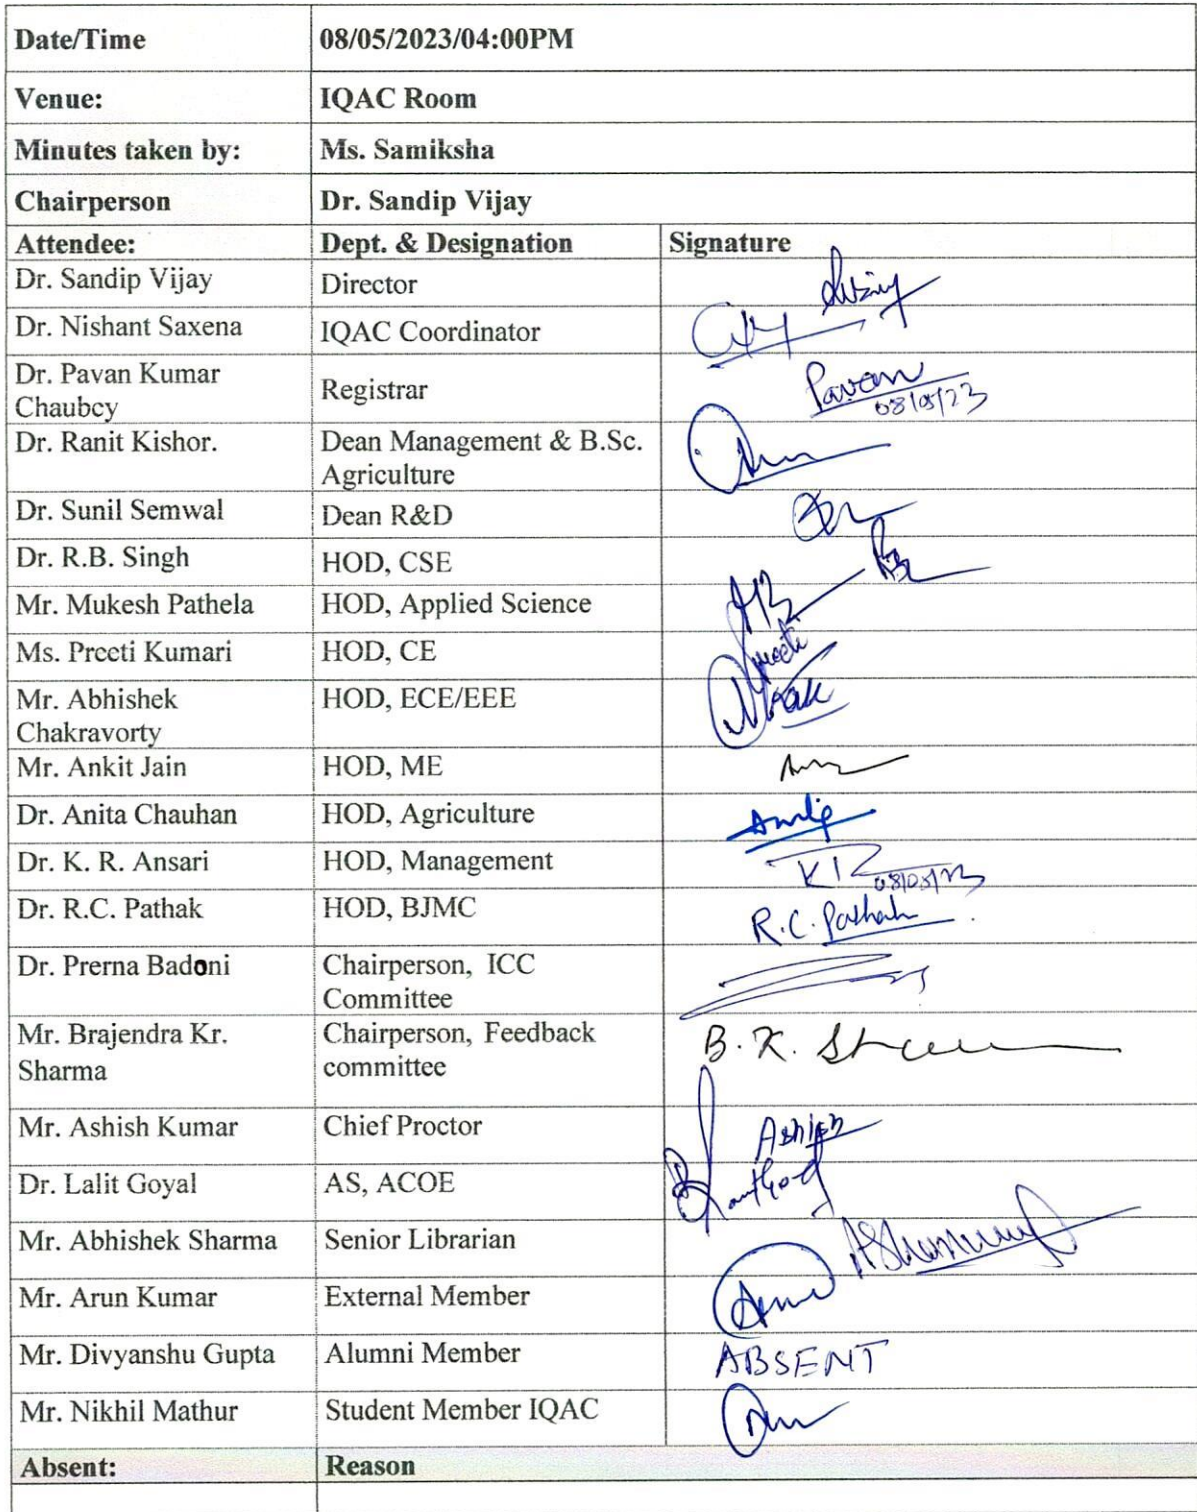 Date/Time 08/05/2023/04:00PM
Venue: IQAC Room
Minutes taken by: Ms. Samiksha
Chairperson Dr. Sandip Vijay
Attendee: Dept. & Designation Signature
Dr. Sandip Vijay Director
Dr. Nishant Saxena IQAC Coordinator
Dr. Pavan Kumar
Chaubcy
Registrar Pavan
08/05/23
Dr. Ranit Kishor. Dean Management & B.Sc.
Agriculture
Dr. Sunil Semwal Dean R&D
Dr. R.B. Singh HOD, CSE
Mr. Mukesh Pathela HOD, Applied Science
Ms. Preeti Kumari HOD, CE Preeti
Mr. Abhishek
Chakravorty
HOD, ECE/EEE
Mr. Ankit Jain HOD, ME
Dr. Anita Chauhan HOD, Agriculture
Dr. K. R. Ansari HOD, Management
08/05/23
Dr. R.C. Pathak HOD, BJMC R.C. Pathak
Dr. Prerna Badoni Chairperson, ICC
Committee
Mr. Brajendra Kr.
Sharma
Chairperson, Feedback
committee
B.K. Sharma
Mr. Ashish Kumar Chief Proctor Ashish
Dr. Lalit Goyal AS, ACOE
Mr. Abhishek Sharma Senior Librarian
Mr. Arun Kumar External Member
Mr. Divyanshu Gupta Alumni Member ABSENT
Mr. Nikhil Mathur Student Member IQAC
Absent: Reason